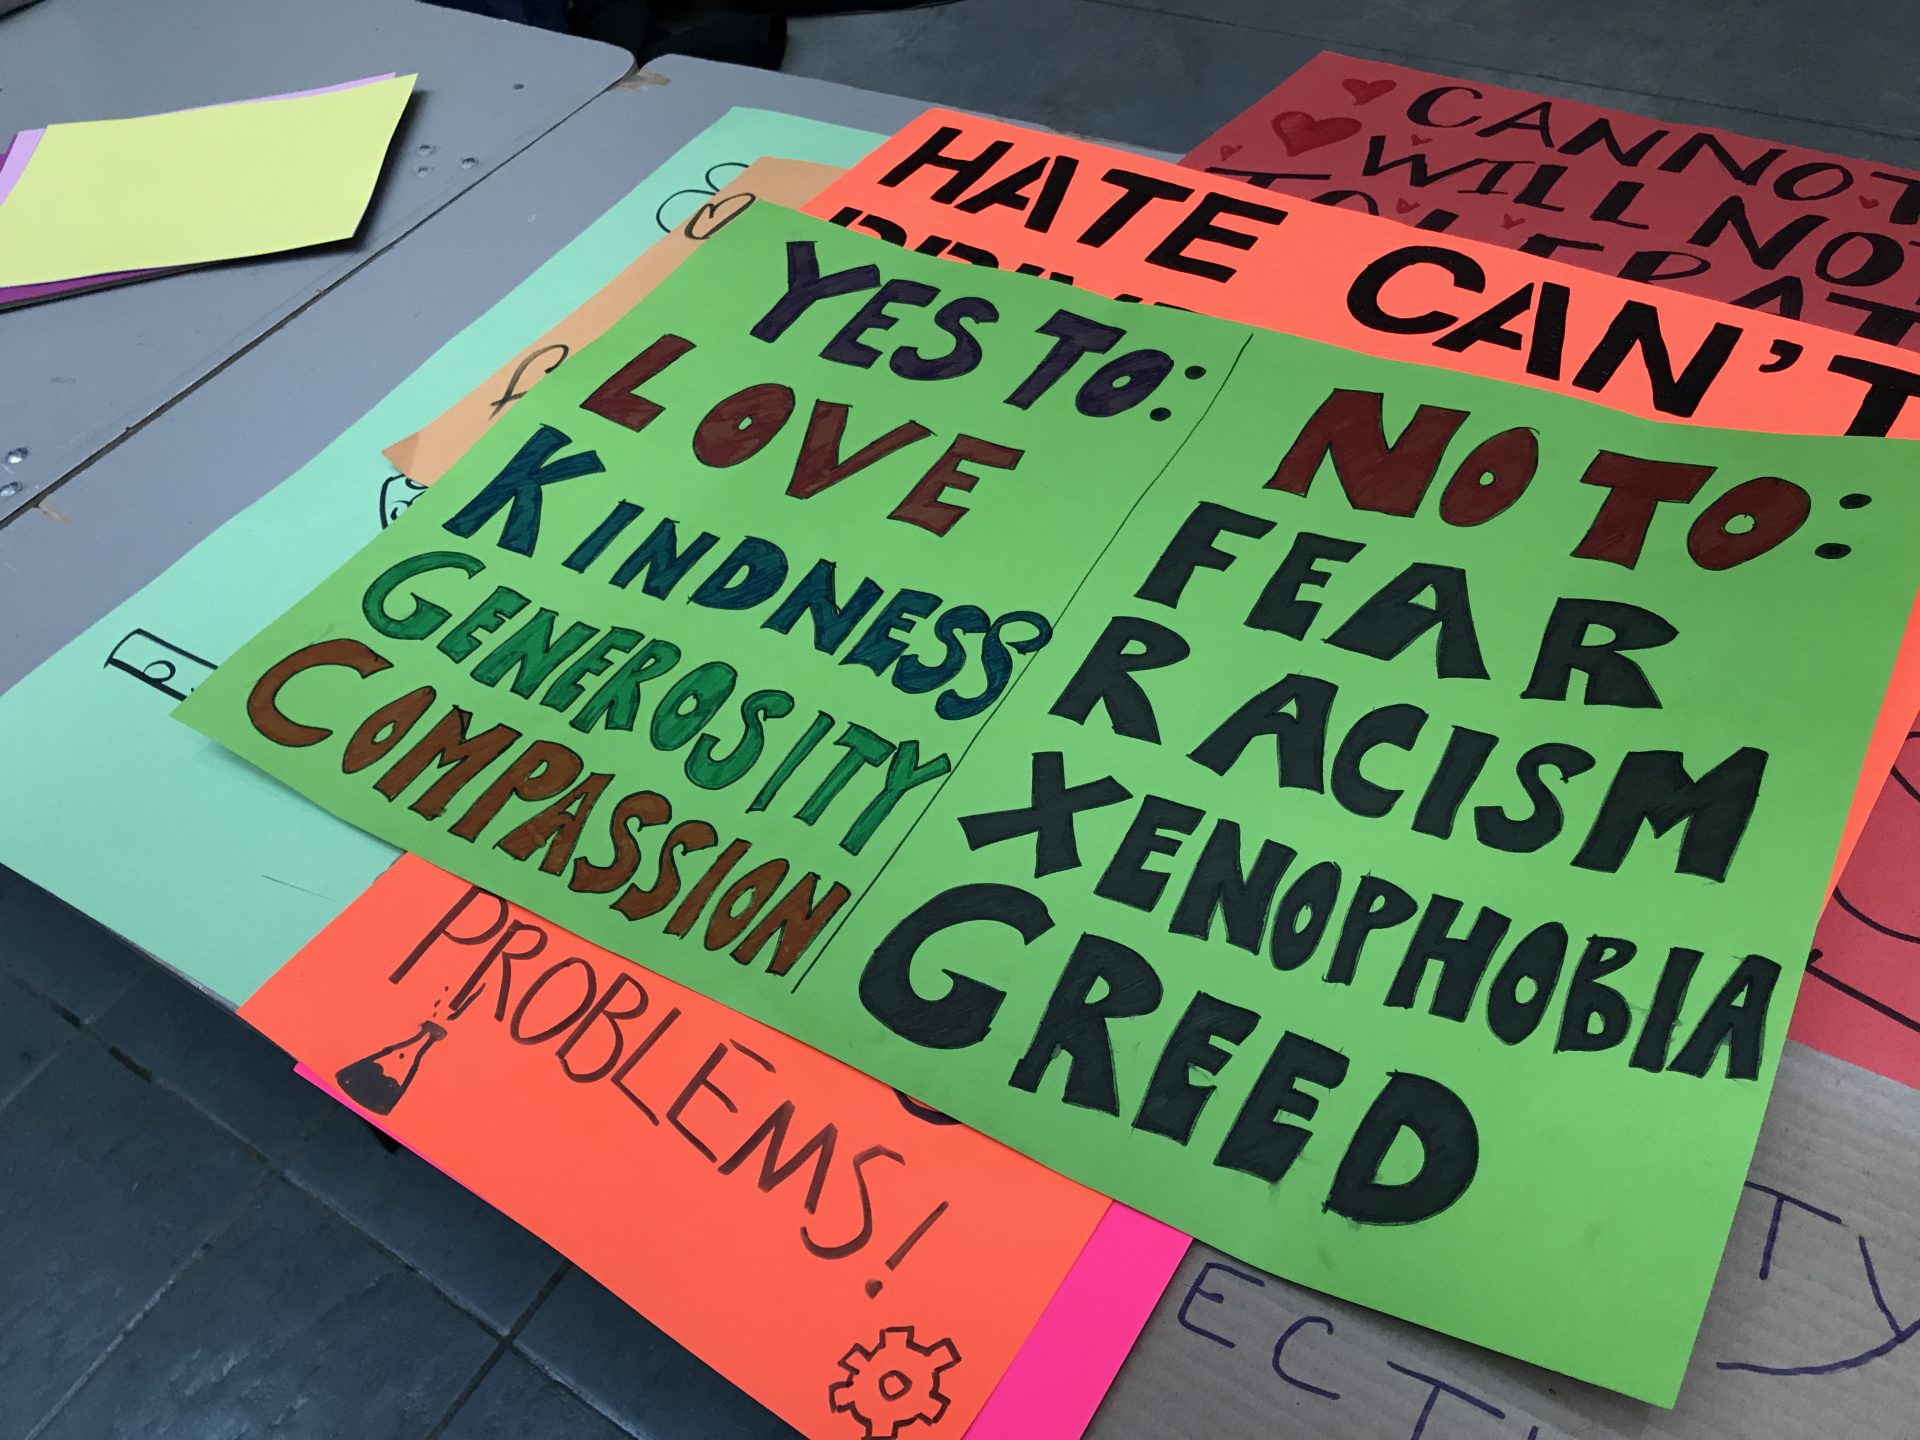 CANNOT
WILL NOT
HATE CAN'T
YES TO:
LOVE
KINDNESS
GENEROSITY
COMPASSION
NO TO:
FEAR
RACISM
XENOPHOBIA
GREED
PROBLEMS!